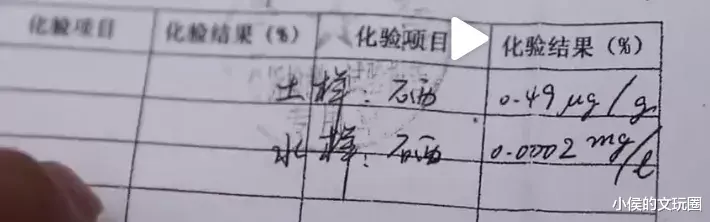 化验项目 化验结果（%） 化验项目 化验结果（%）
土样：硒 0.49 μg/g
水样：硒 0.0002 mg/l
小侯的文玩圈